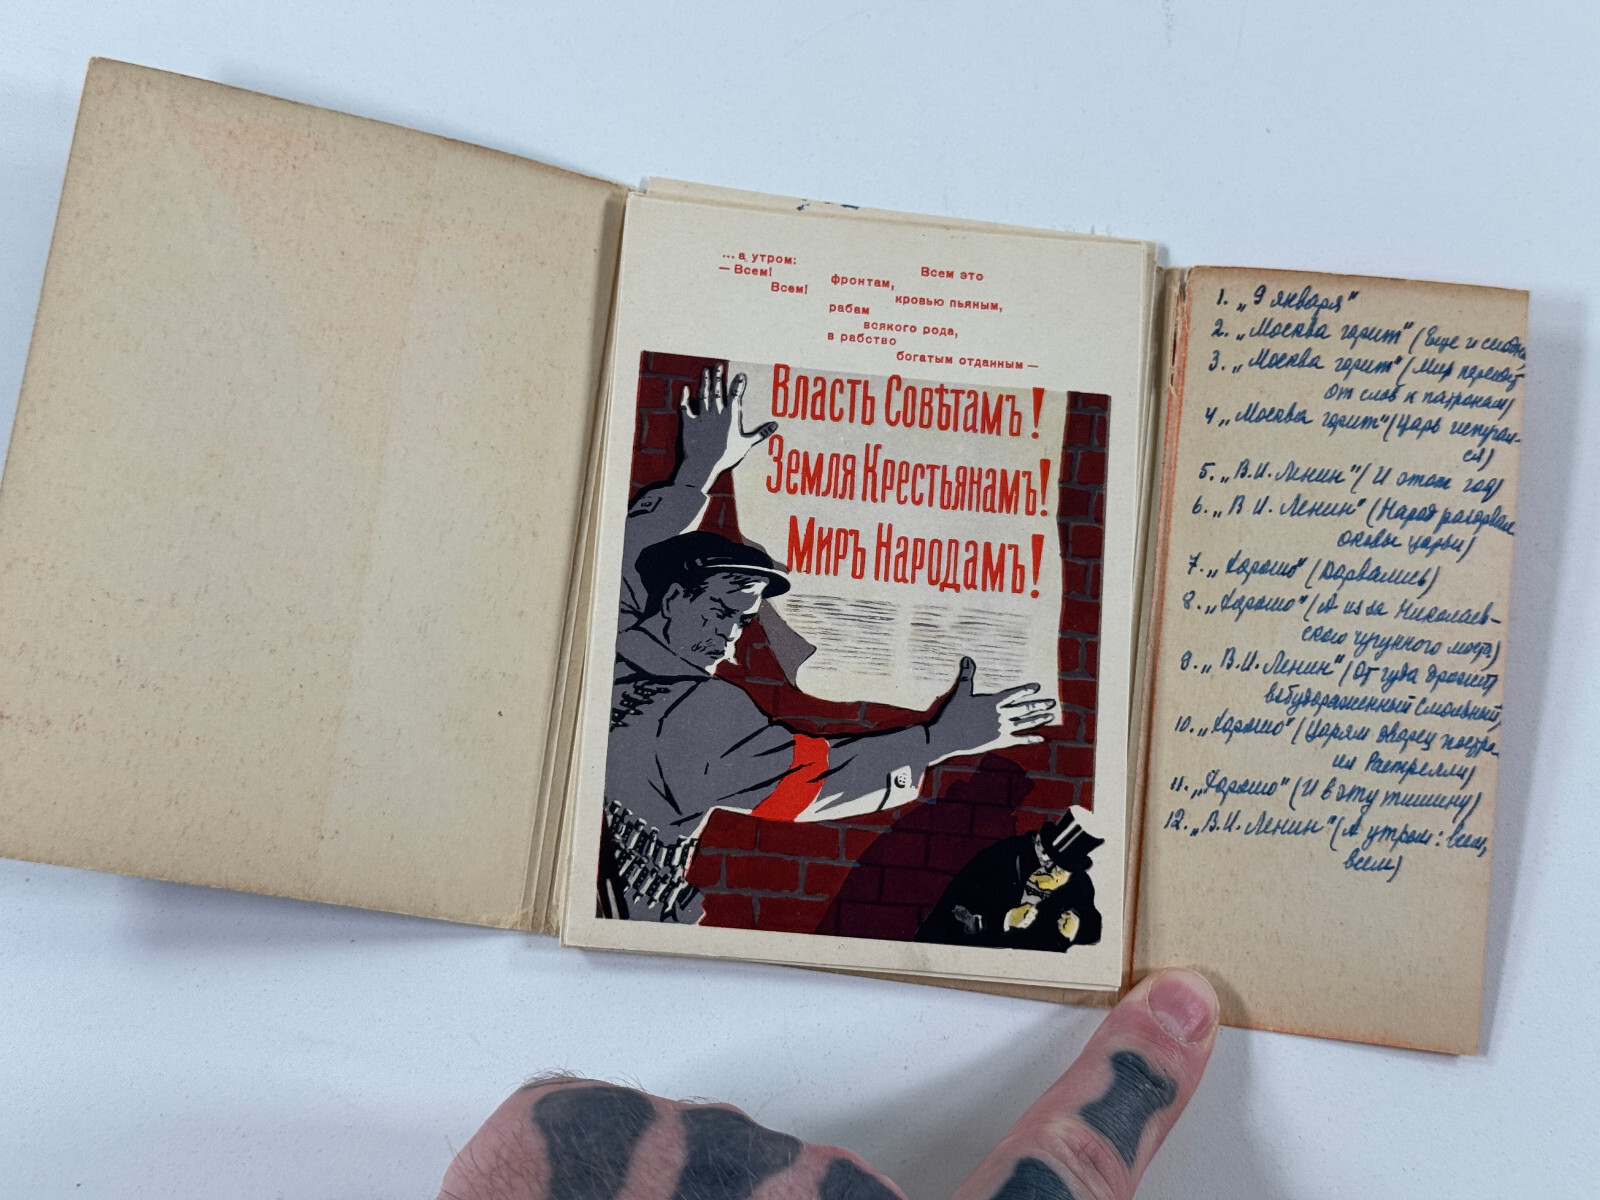 ...а утром:
— Всем!
Всем!
Всем это
фронтам,
кровью пьяным,
рабам
всякого рода,
в рабство
богатым отданным —
Власть Совѣтамъ!
Земля Крестьянамъ!
Миръ Народамъ!
1. „9 января"
2. „Москва горит" (Еще и
3. „Москва горит" (Мир
От слов к патронам)
4 „Москва горит" (Царь испугал-
ся)
5. „В.И. Ленин" (И этот год)
6. „В И. Ленин" (Народ
оковы царьи)
7. „Хорошо" (Дорвались)
8. „Хорошо" (А из за Николаев-
ского чугунного моста)
9. „В.И. Ленин" (От гуда дрожит
взбудораженный Смольный,
10. „Хорошо" (Царям дворец постро-
ил Растрелли)
11. „Хорошо" (И в эту тишину)
12. „В.И. Ленин" (А утром: всем,
всем)